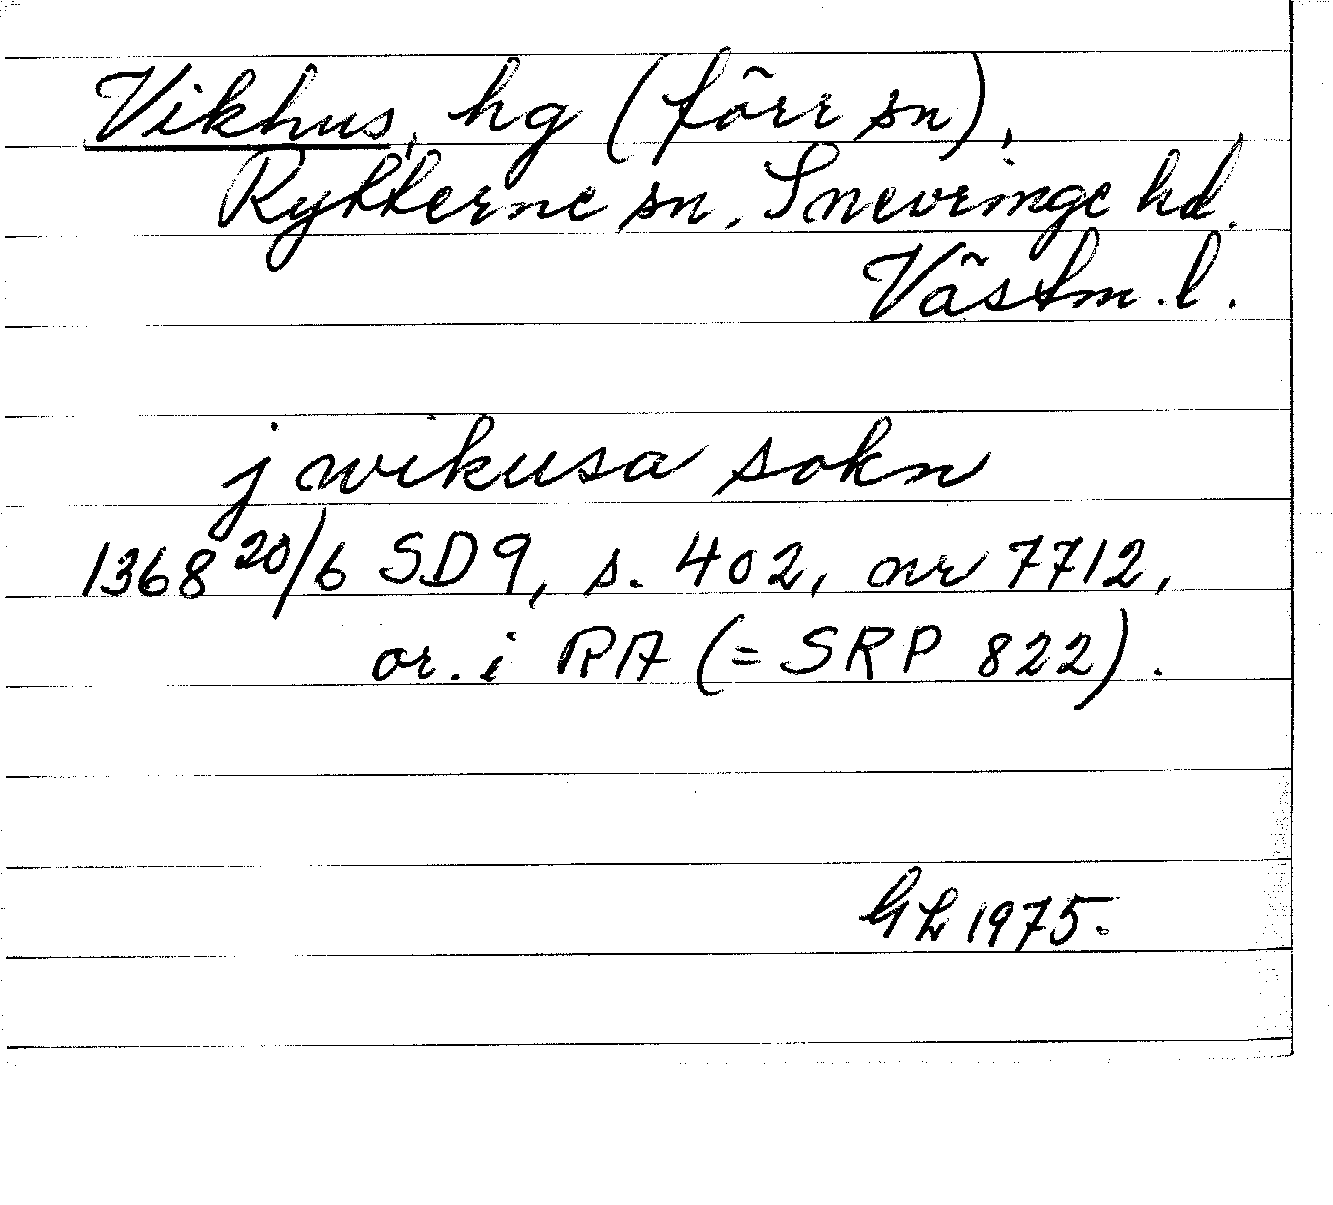 Vikhus, hg (förr sn),
Rytterne sn, Snevringe hd.
Västm. l.
j wikusa sokn
1368 20/6 SD 9, s. 402, nr 7712,
or. i RA (= SRP 822).
GL 1975.